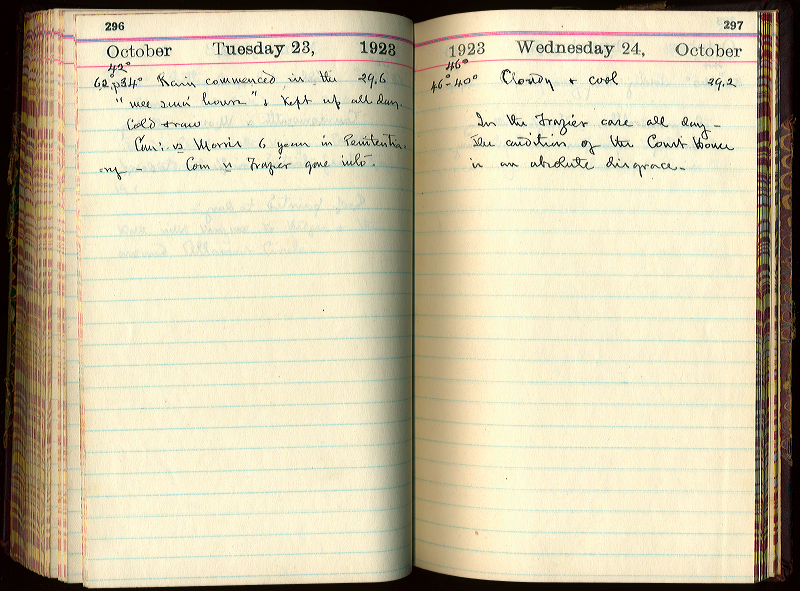 296
October Tuesday 23, 1923
42°
62°,34° Rain commenced in the 29.6
"wee sma' hours" & kept up all day.
Cold & raw
Com: vs Morris 6 years in Penitentia-
ry - Com vs Frazier gone into.
297
1923 Wednesday 24, October
46°
46°-40° Cloudy & cool 29.2
In the Frazier case all day -
The condition of the Court House
is an absolute disgrace -